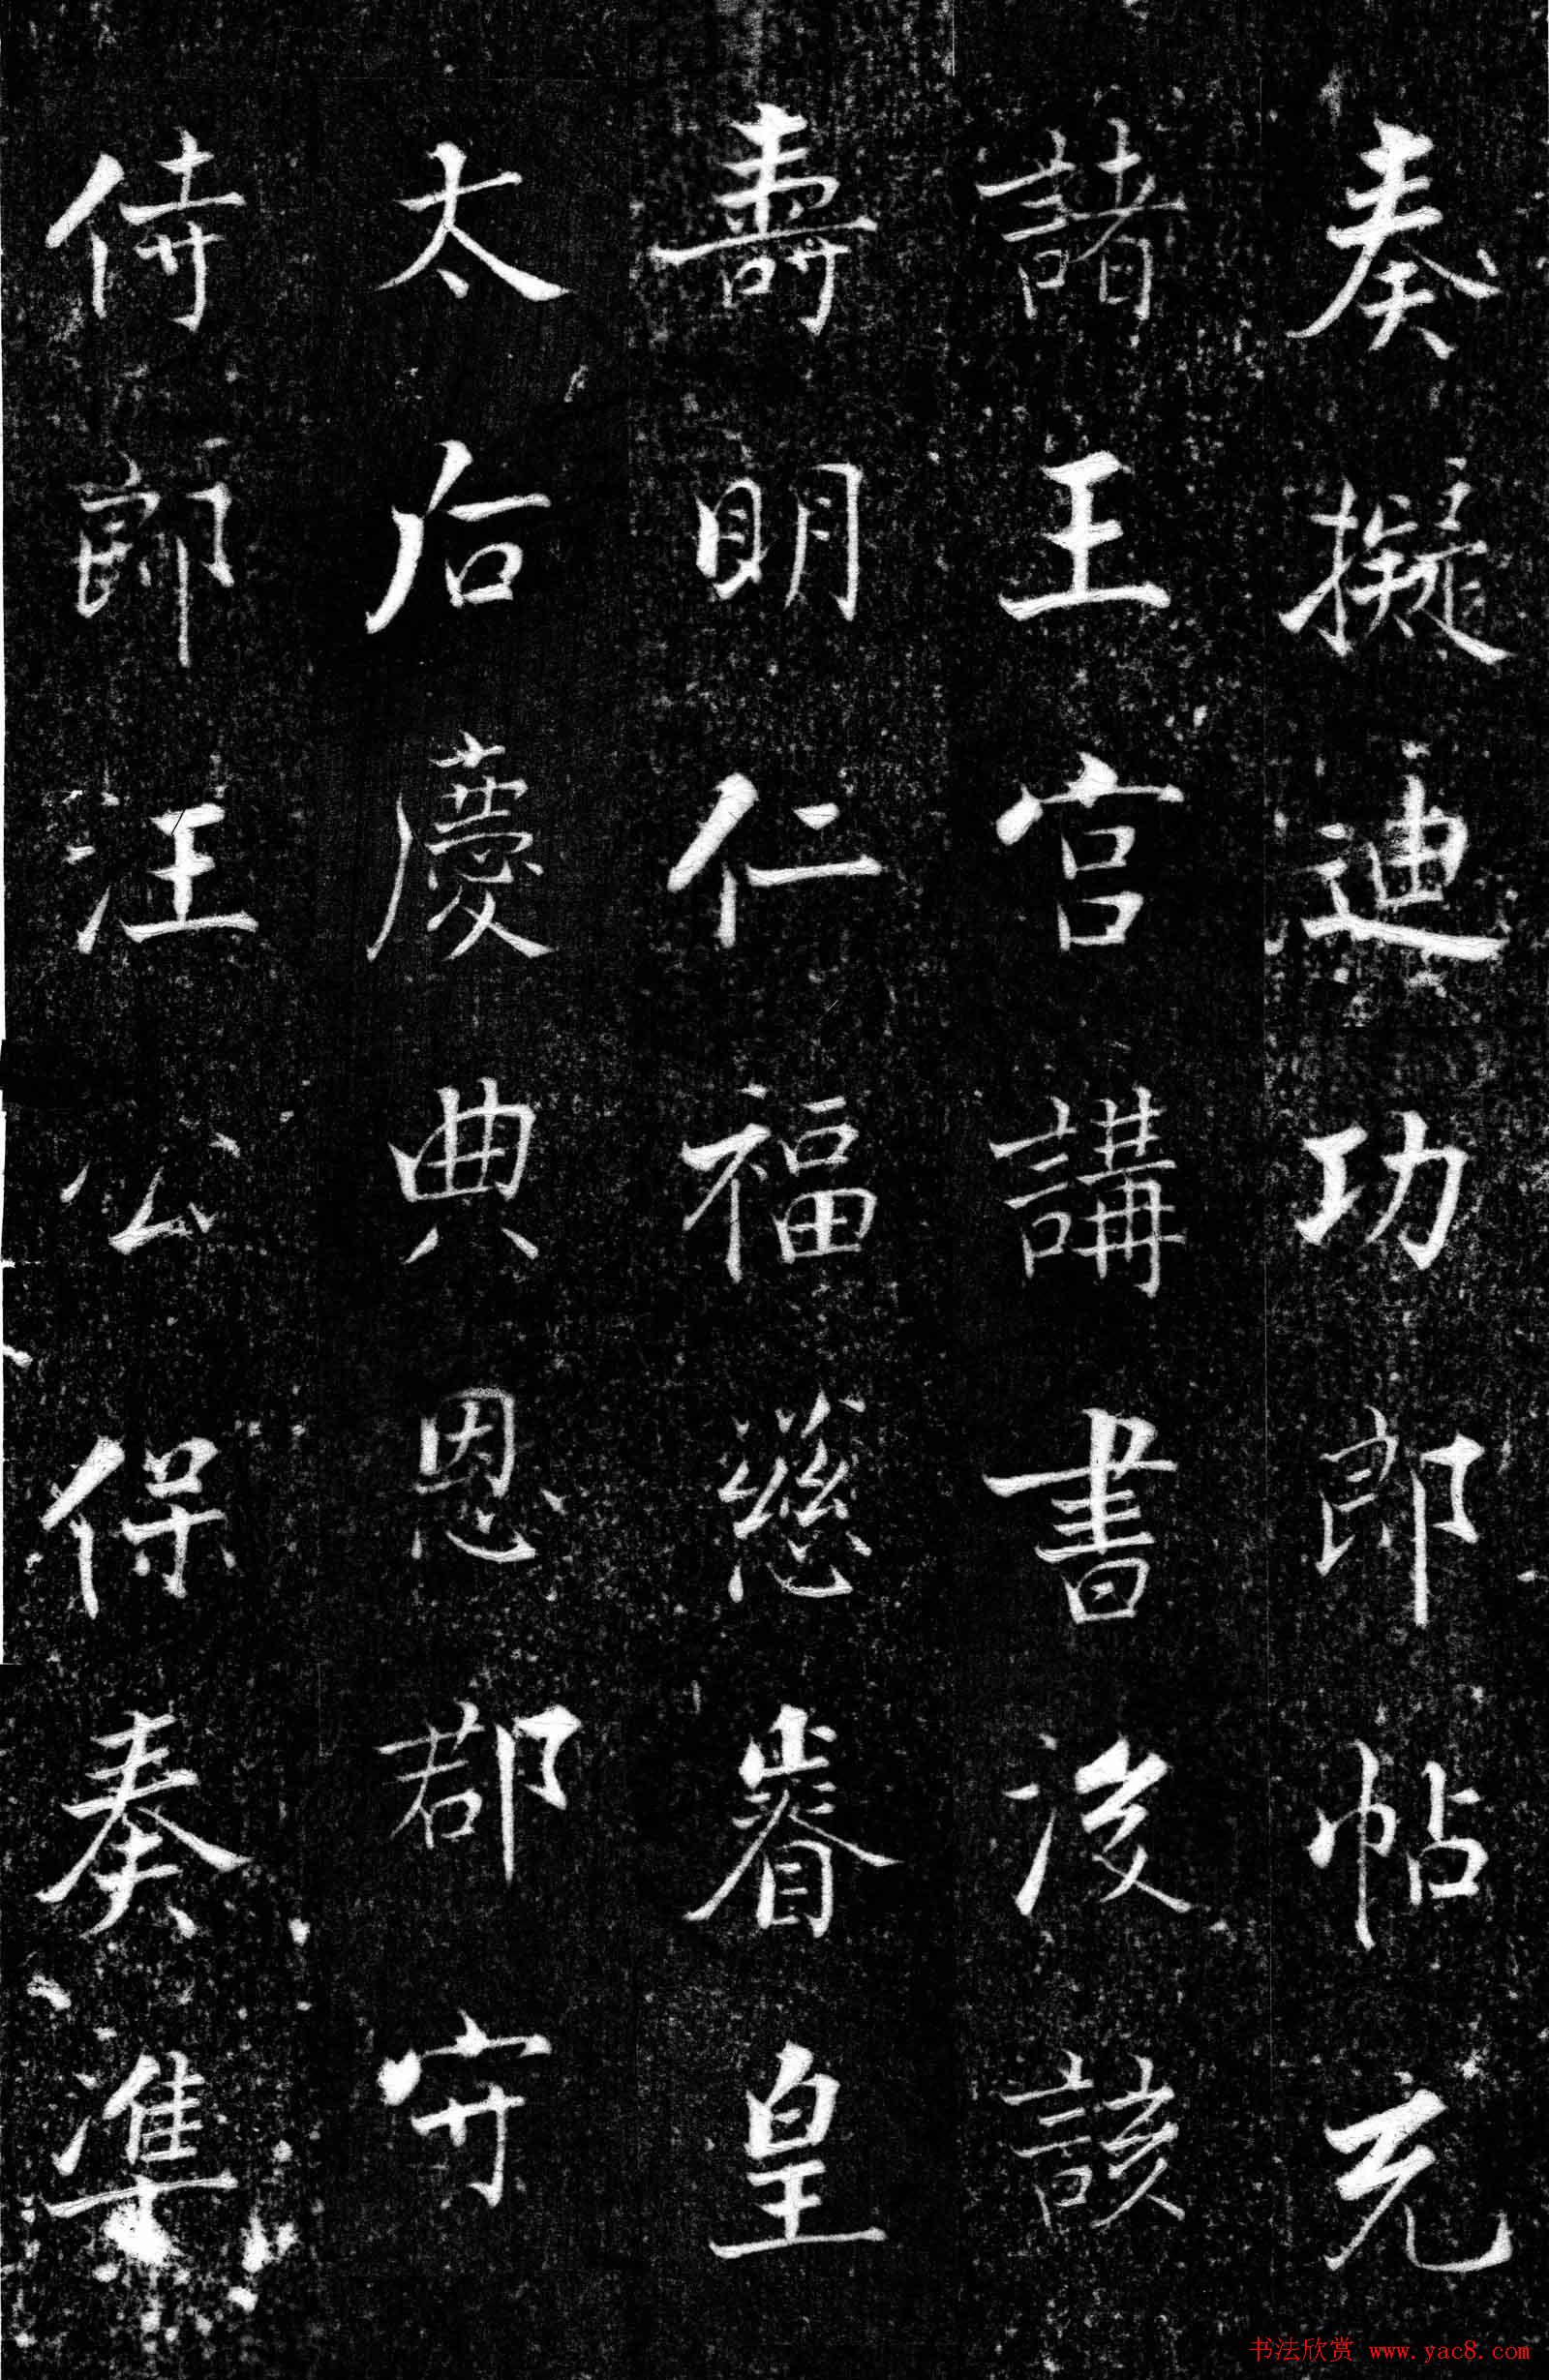 奏擬迪功郎帖充
諸王宮講書後該
壽明仁福慈睿皇
太后慶典恩郡守
侍郎汪公保奏準
书法欣赏 www.yac8.com